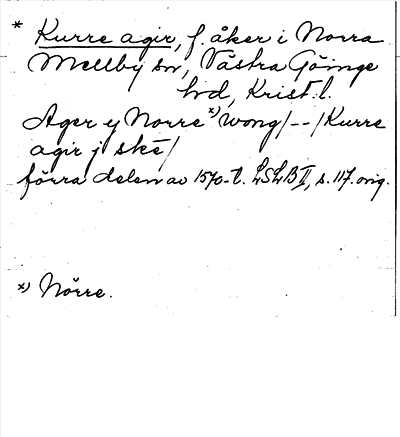 * Kurre agir, f. åker i Norra
Mellby sn, Västra Göinge
hd, Krist. l.
Ager ej Norre x) wong/--/Kurre
agir j ske/
förra delen av 1570-t. LSLB II, s. 117. orig.
x) Nörre.